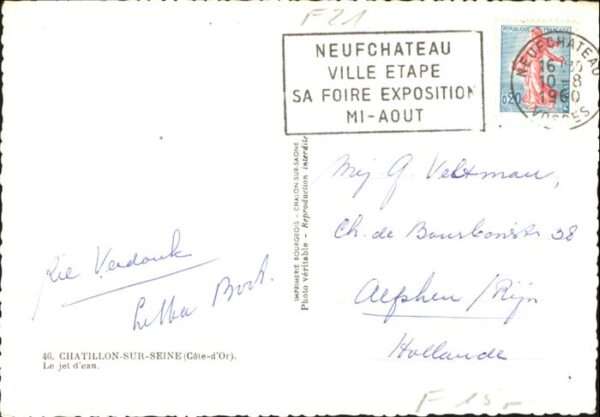 F 21
NEUFCHATEAU
VILLE ETAPE
SA FOIRE EXPOSITION
MI-AOUT
REPUBLIQUE FRANÇAISE
0,20
NEUFCHATEAU
16
10-8
1960
VOSGES
Mej G. Veltman,
Ch. de Bourbonstr 38
Alphen / Rijn
Hollande
Rie Verdonk
Bort.
IMPRIMERIE BOURGEOIS - CHALON-SUR-SAONE
Photo véritable - Reproduction interdite
46. CHATILLON-SUR-SEINE (Côte-d'Or).
Le jet d'eau.
F 15,-